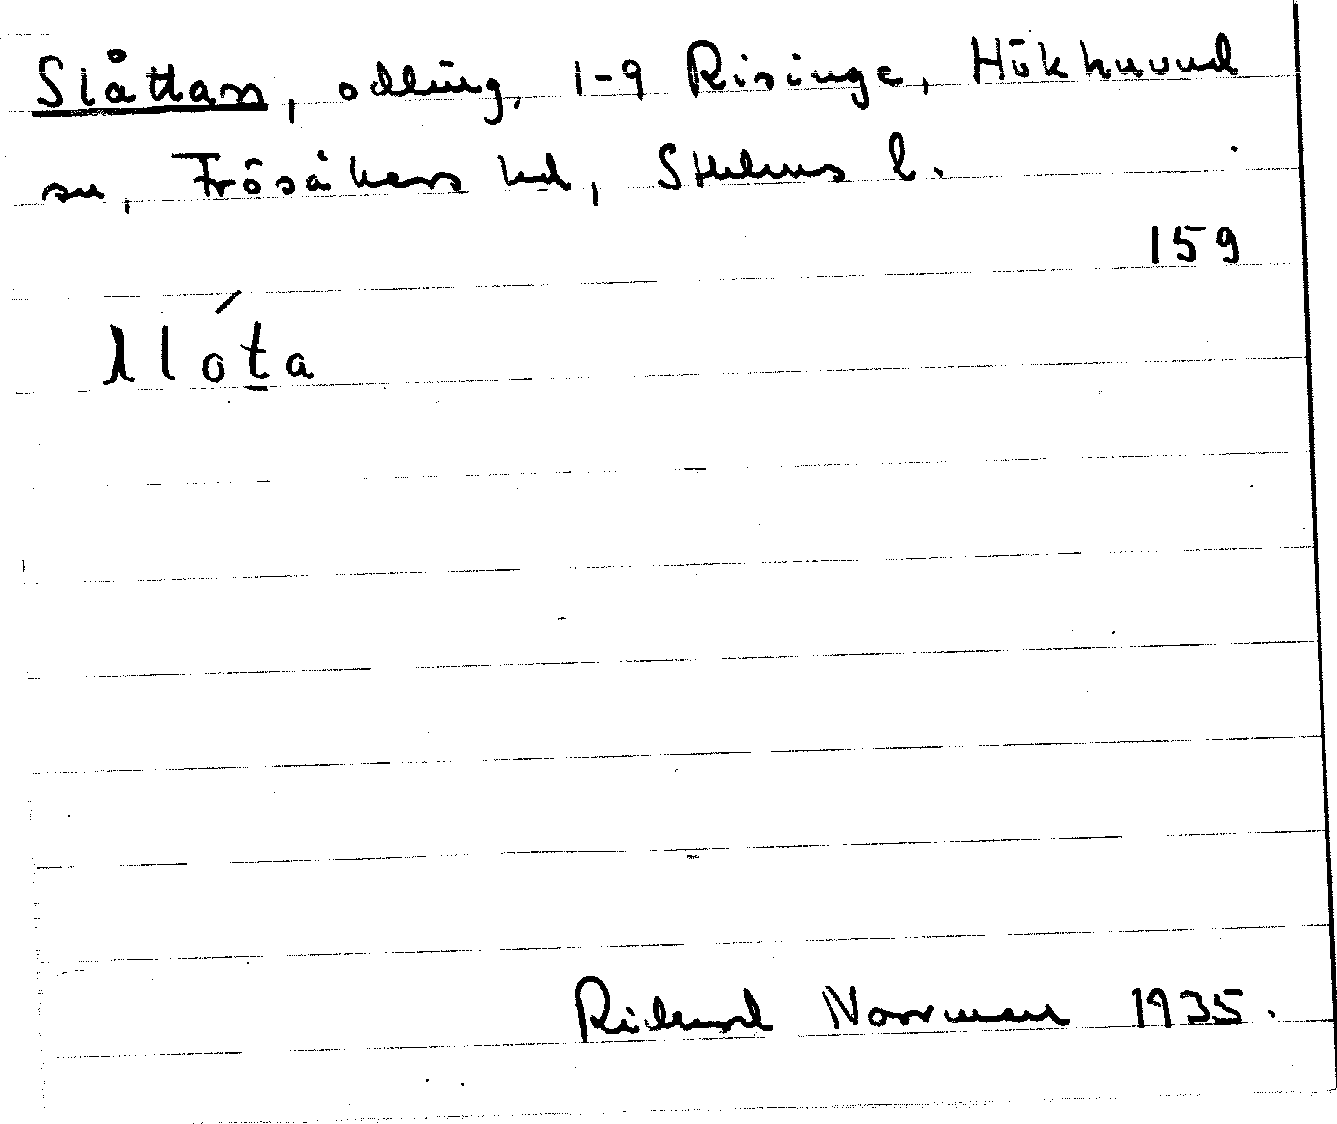 Slåttan, odling, 1-9 Risinge, Hökhuvud
sn, Frösåkers hd, Sthlms l.
159
slóṯa
Richard Norrman 1935.